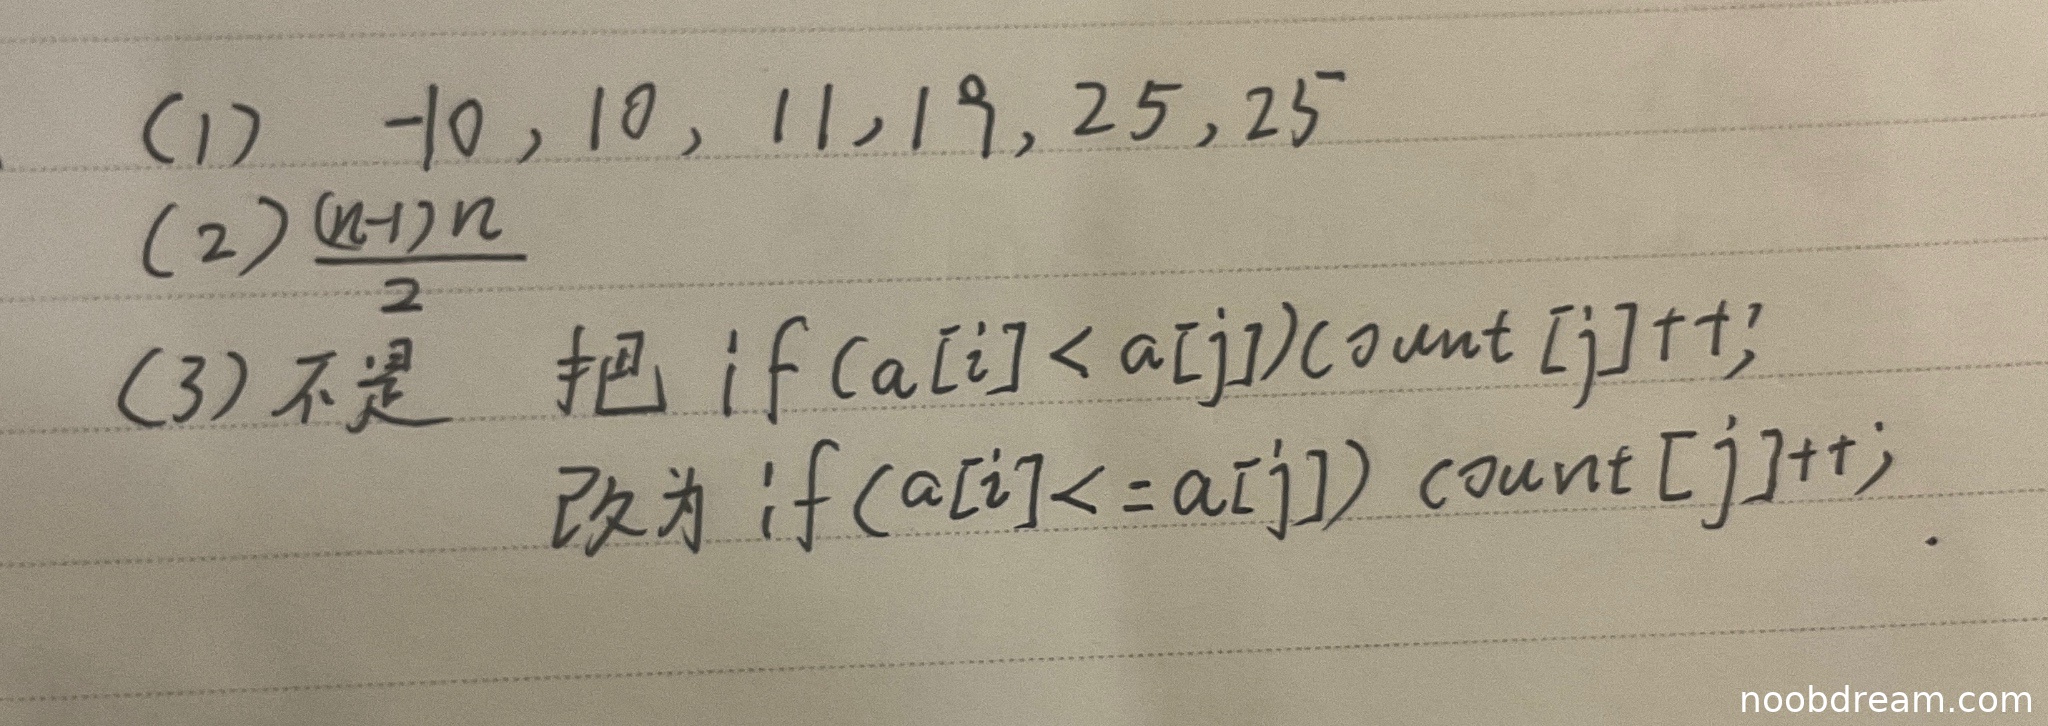 (1) -10, 10, 11, 19, 25, 25
(2) (n-1)n/2
(3) 不是 把 if(a[i]<a[j])count[j]++;
改为 if(a[i]<=a[j]) count[j]++;
noobdream.com